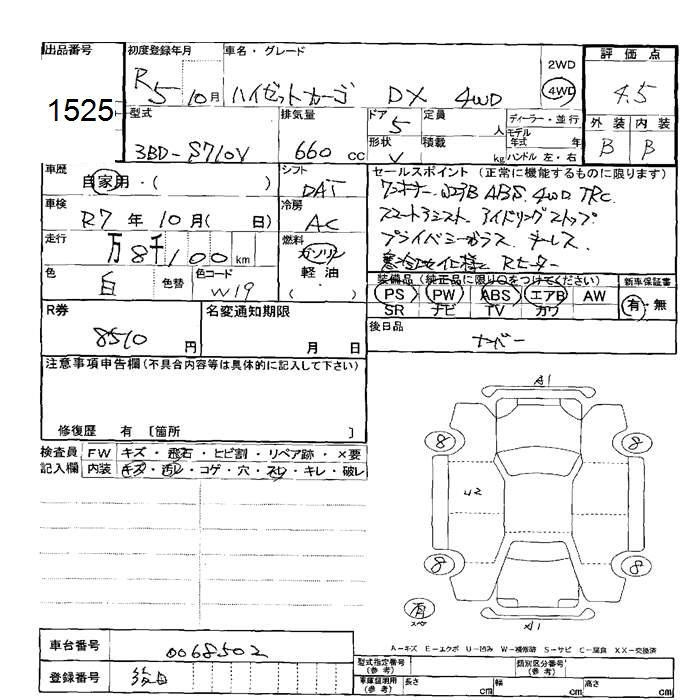 出品番号 初度登録年月 車名・グレード 2WD 評価点
1525 R5 10月 ハイゼットカーゴ DX 4WD 4WD 4.5
型式 排気量 ドア 定員 ディーラー・並行 外装 内装
3BD-S710V 660 cc 5 人 モデル年式 年 B B
形状 V 積載 kg ハンドル 左・右
車歴 シフト セールスポイント (正常に機能するものに限ります)
自家用・( ) DAT ワンオーナー WエアB ABS 4WD TRC
車検 冷房 スマートアシスト アイドリングストップ
R7 年 10月( 日) AC プライバシーガラス キーレス
走行 燃料 寒冷地仕様 Rヒーター
万 8千100 km ガソリン
色 色替 色コード 軽油 装備品 (純正品に限り○をつけてください) 新車保証書
白 W19 ( ) PS PW ABS エアB AW 有・無
R券 名変通知期限 SR ナビ TV カワ
8510 円 月 日 後日品
ナンバー
注意事項申告欄(不具合内容等は具体的に記入して下さい)
修復歴 有 [箇所 ]
検査員 FW キズ・飛石・ヒビ割・リペア跡・×要
記入欄 内装 キズ・汚レ・コゲ・穴・スレ・キレ・破レ
A1
8 8
U2
8 8
有
スペア
A1
A-キズ E-エクボ U-凹み W-補修跡 S-サビ C-腐食 XX-交換済
車台番号 0068502
型式指定番号(参考) 類別区分番号(参考)
登録番号
車庫証明用(参考) 長さ cm 幅 cm 高さ cm